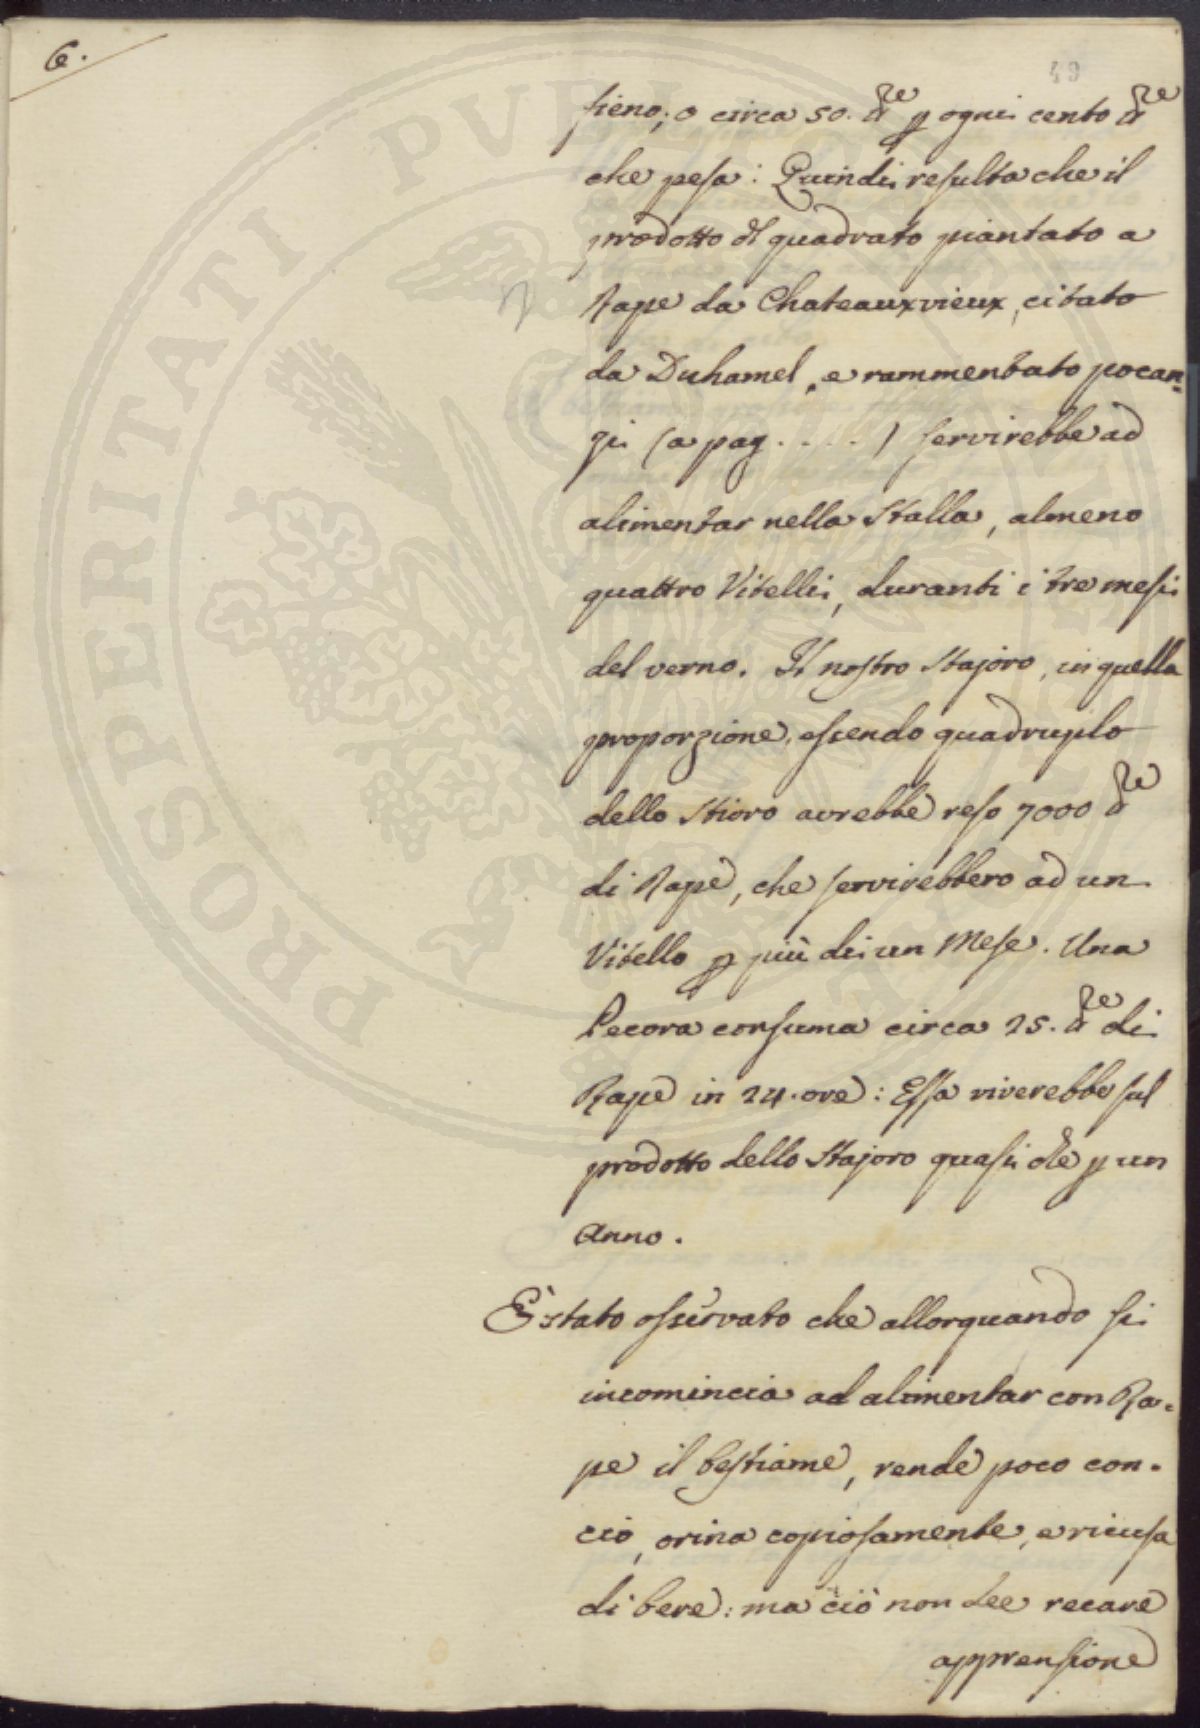 6.
49
fieno; o circa 50. ℔re p ogni cento ℔re
che pesa: Quindi resulta che il
prodotto dl quadrato piantato a
Rape da Chateauxvieux, citato
da Duhamel, e rammentato pocan=
zi (a pag. . . . . ) servirebbe ad
alimentar nella Stalla, almeno
quattro Vitelli, duranti i tre mesi
del verno. Il nostro Stajoro, in quella
proporzione, essendo quadruplo
dello Stioro avrebbe reso 7000 ℔re
di Rape, che servirebbero ad un
Vitello p più di un Mese. Una
Pecora consuma circa 25. ℔re di
Rape in 24. ore: Essa viverebbe sul
prodotto dello Stajoro quasi che p un
Anno.
È stato osservato che allorquando si
incomincia ad alimentar con Ra=
pe il bestiame, rende poco con=
cio, orina copiosamente, e ricusa
di bere: ma ciò non dee recare
apprensione
PROSPERITATI PVBLICAE